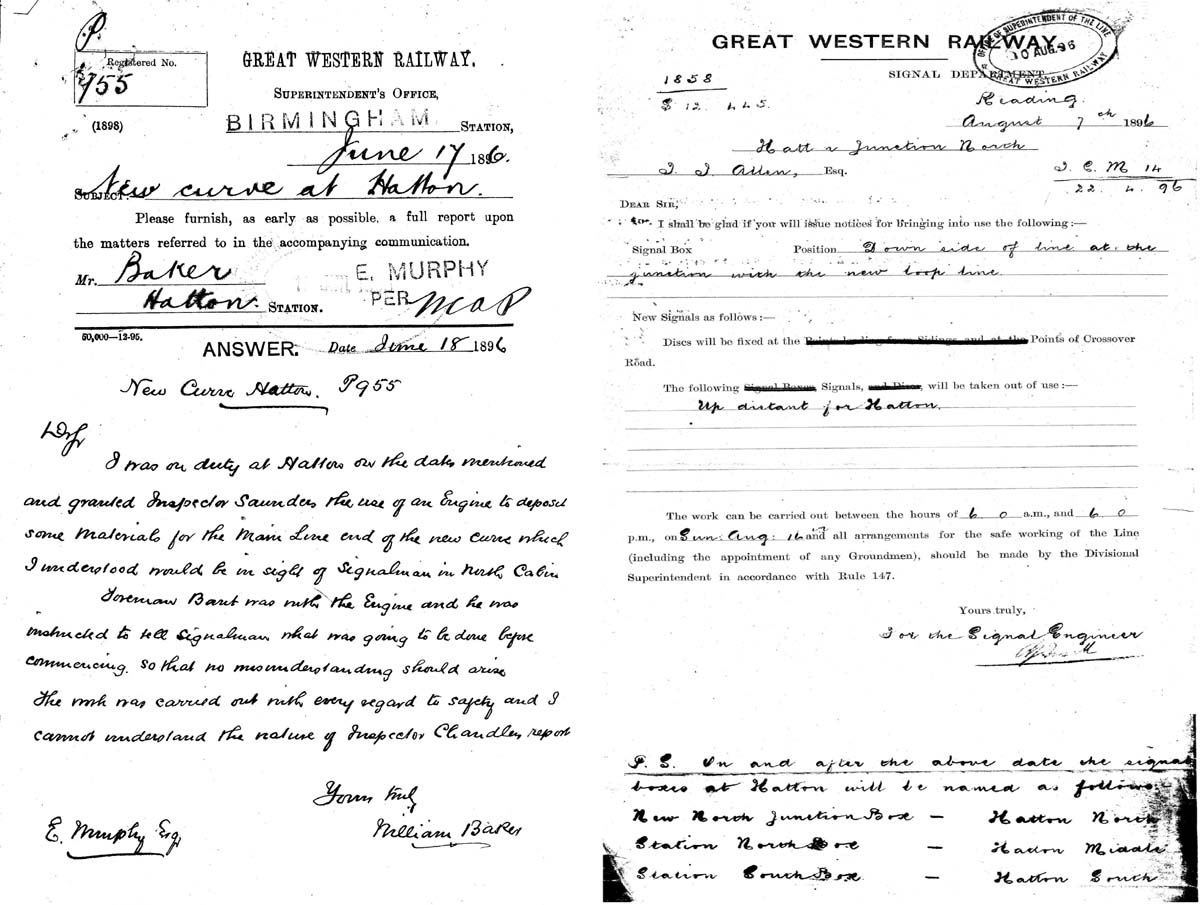 P.
Registered No.
955
GREAT WESTERN RAILWAY.
SUPERINTENDENT'S OFFICE,
(1898)
BIRMINGHAM STATION,
June 17 1896.
SUBJECT: New curve at Hatton.
Please furnish, as early as possible, a full report upon
the matters referred to in the accompanying communication.
Mr. Baker
E. MURPHY
Hatton. STATION.
PER
50,000—12-95.
ANSWER. Date June 18 1896
New Curve Hatton. P955
I was on duty at Hatton on the date mentioned
and granted Inspector Saunders the use of an Engine to deposit
some Materials for the Main Line end of the new curve which
I understood would be in sight of Signalman in North Cabin
Foreman was with the Engine and he was
instructed to tell Signalman what was going to be done before
commencing. so that no misunderstanding should arise
The work was carried out with every regard to safety and I
cannot understand the nature of Inspector Chandlers report
Yours truly
William Baker
E. Murphy Esq
GREAT WESTERN RAILWAY.
OFFICE OF SUPERINTENDENT OF THE LINE
10 AUG 96
GREAT WESTERN RAILWAY
SIGNAL DEPARTMENT
1858
S 12 445.
Reading.
August 7th 1896
Hatton Junction North
Allen, Esq.
14
22. 4. 96
DEAR SIR,
I shall be glad if you will issue notices for bringing into use the following:—
Signal Box Position Down side of line at the
junction with the new loop line
New Signals as follows:—
Discs will be fixed at the Points leading from Sidings and at the Points of Crossover
Road.
The following Signal Boxes, Signals, and Discs, will be taken out of use:—
Up distant for Hatton.
The work can be carried out between the hours of 6 0 a.m., and 6 0
p.m., on Sun: Aug: 16th and all arrangements for the safe working of the Line
(including the appointment of any Groundmen), should be made by the Divisional
Superintendent in accordance with Rule 147.
Yours truly,
For the Signal Engineer
P. S. On and after the above date the signal
boxes at Hatton will be named as follows:—
New North Junction Box — Hatton North
Station North Box — Hatton Middle
Station South Box — Hatton South